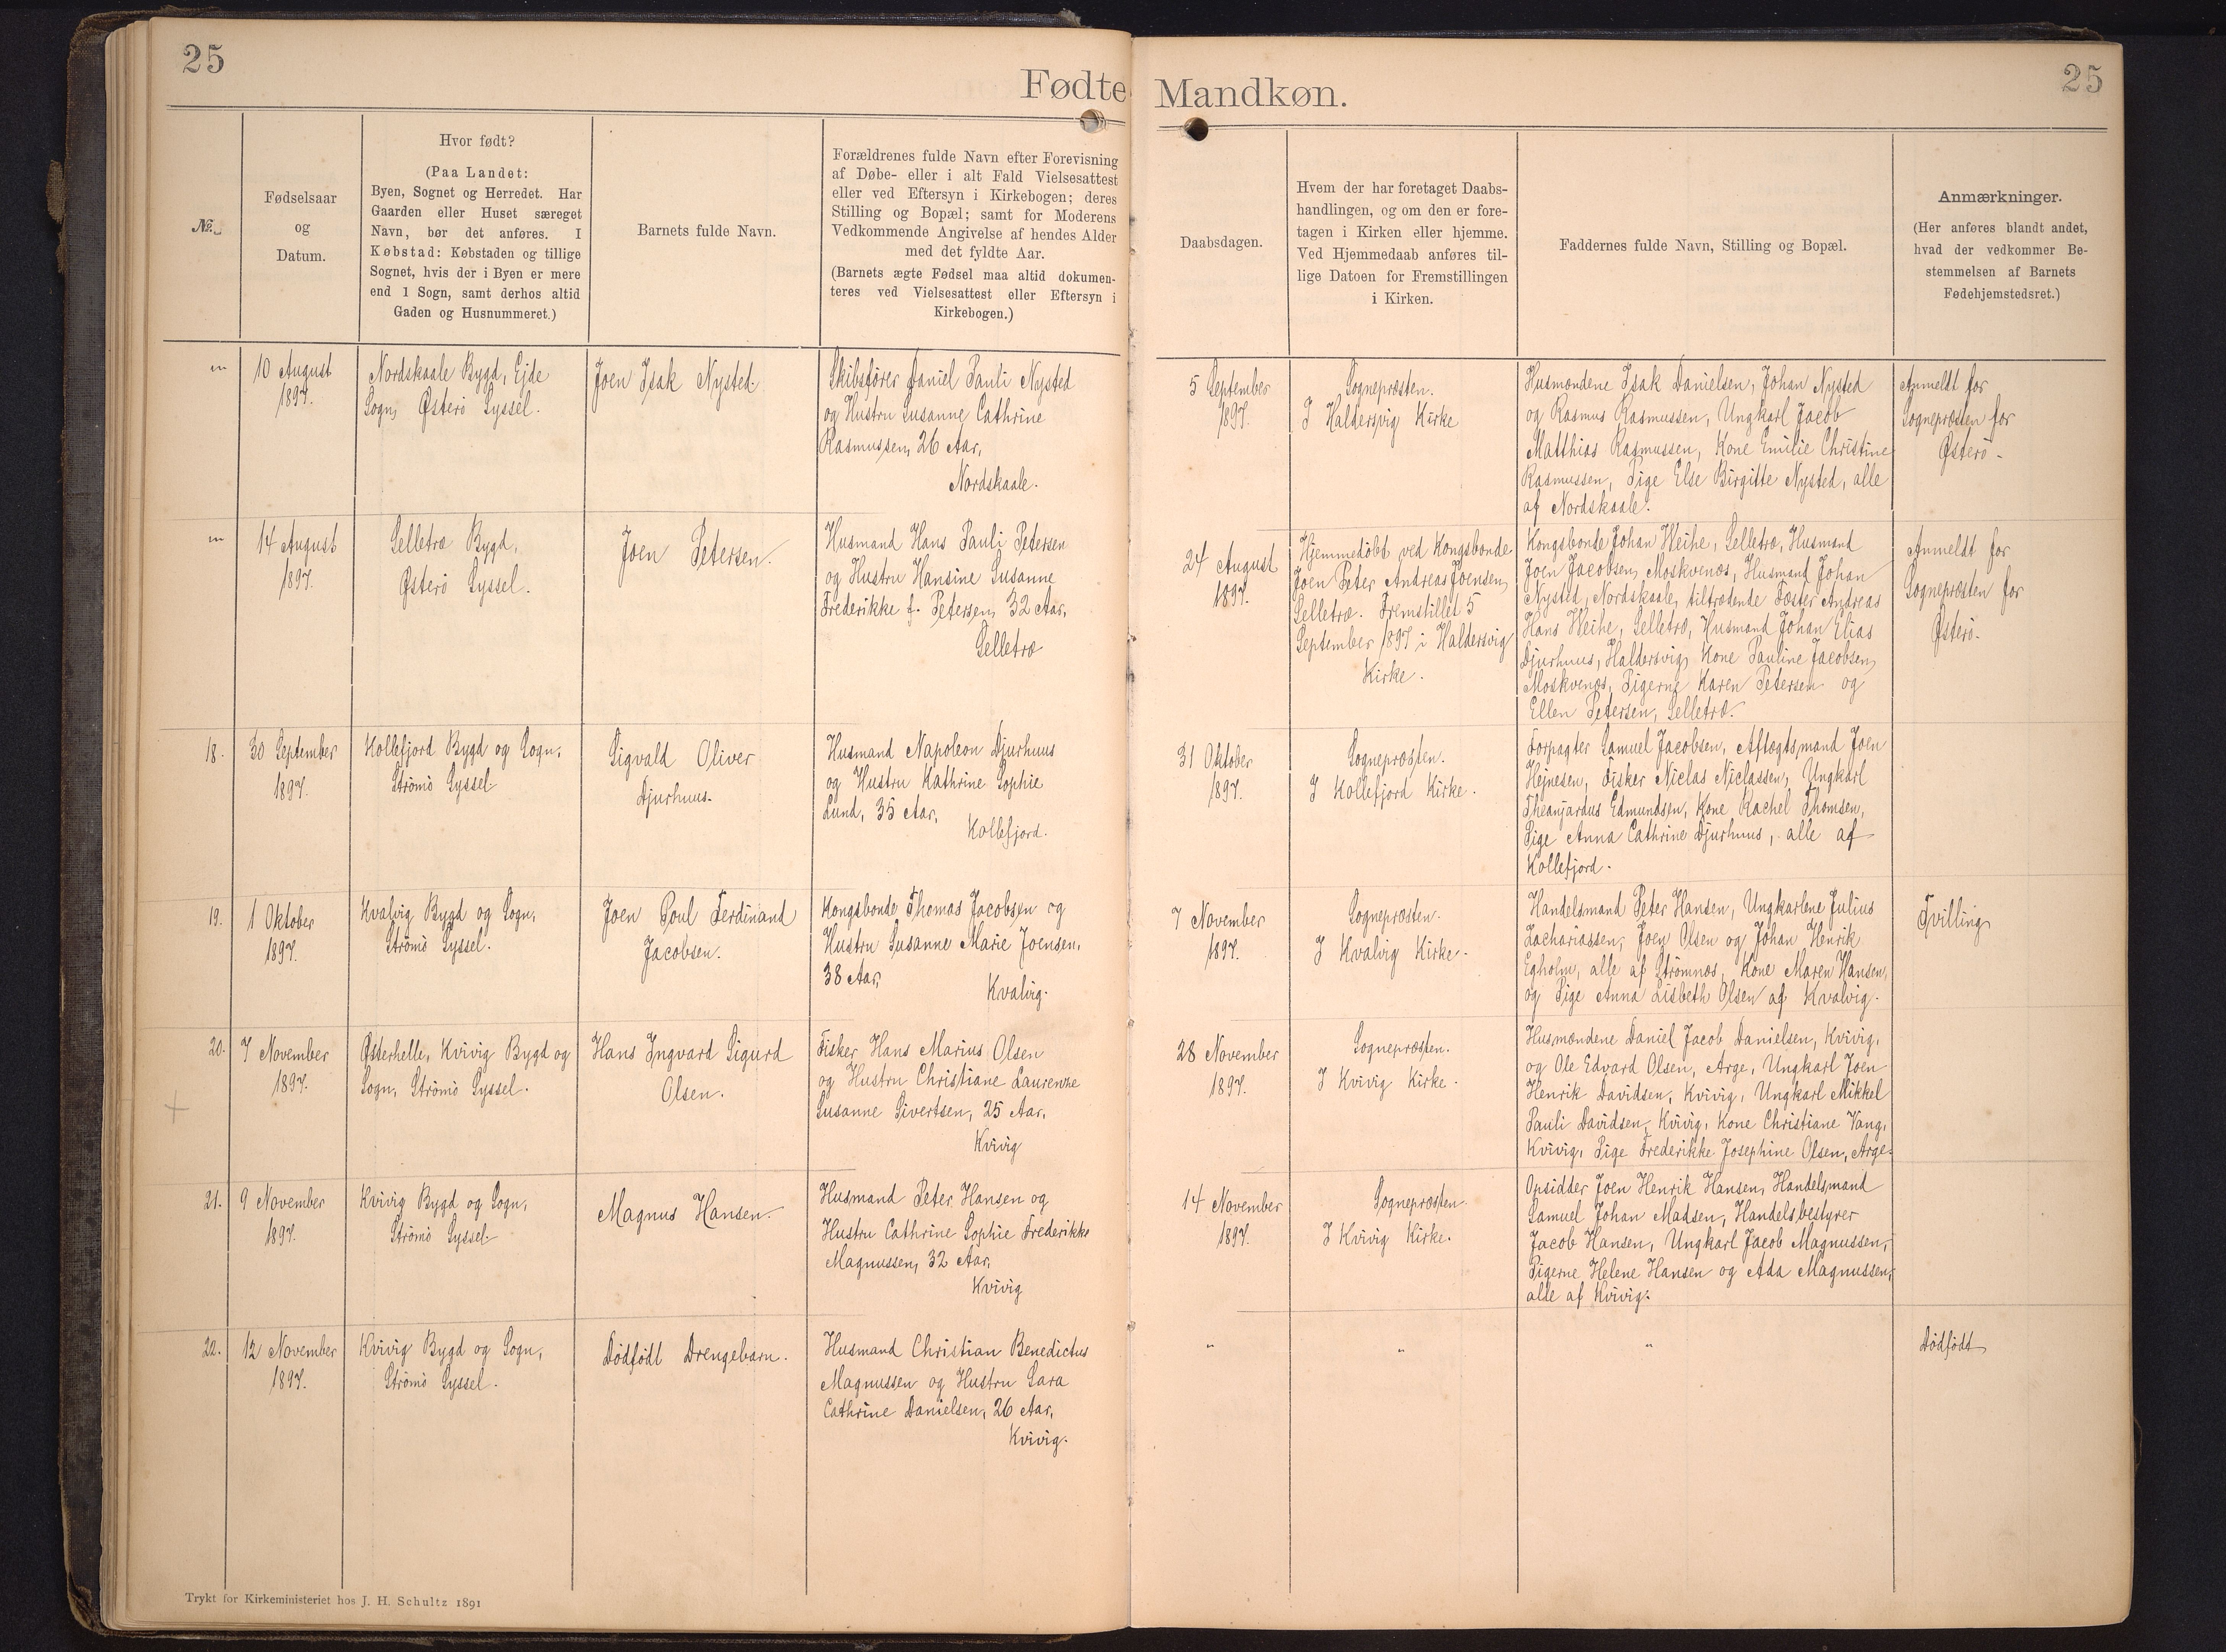 25
Fødte
No.
Fødselsaar
og
Datum.
Hvor født?
(Paa Landet:
Byen, Sognet og Herredet. Har
Gaarden eller Huset særeget
Navn, bør det anføres. I
Købstad: Købstaden og tillige
Sognet, hvis der i Byen er mere
end 1 Sogn, samt derhos altid
Gaden og Husnummeret.)
Barnets fulde Navn.
Forældrenes fulde Navn efter Forevisning
af Døbe- eller i alt Fald Vielsesattest
eller ved Eftersyn i Kirkebogen; deres
Stilling og Bopæl; samt for Moderens
Vedkommende Angivelse af hendes Alder
med det fyldte Aar.
(Barnets ægte Fødsel maa altid dokumen-
teres ved Vielsesattest eller Eftersyn i
Kirkebogen.)
Mandkøn.
25
Daabsdagen.
Hvem der har foretaget Daabs-
handlingen, og om den er fore-
tagen i Kirken eller hjemme.
Ved Hjemmedaab anføres til-
lige Datoen for Fremstillingen
i Kirken.
Faddernes fulde Navn, Stilling og Bopæl.
Anmærkninger.
(Her anføres blandt andet,
hvad der vedkommer Be-
stemmelsen af Barnets
Fødehjemstedsret.)
"
10 August
1897.
Nordskaale Bygd, Ejde
Sogn, Østerö Syssel.
Joen Isak Nysted.
Skibsfører Daniel Pauli Nysted
og Hustru Susanne Cathrine
Rasmussen, 26 Aar,
Nordskaale.
5 September
1897.
Sognepræsten.
I Haldersvig Kirke
Husmændene Isak Danielsen, Johan Nysted
og Rasmus Rasmussen, Ungkarl Jacob
Matthias Rasmussen, Kone Emilie Christine
Rasmussen, Pige Else Birgitte Nysted, alle
af Nordskaale.
Anmeldt for
Sognepræsten for
Østerö.
"
14 August
1897.
Selletræ Bygd,
Østerö Syssel.
Joen Petersen.
Husmand Hans Pauli Petersen
og Hustru Hansine Susanne
Frederikke f. Petersen, 32 Aar,
Selletræ
24 August
1897.
Hjemmedöbt ved Kongsbonde
Joen Peter Andreas Joensen,
Selletræ. Fremstillet 5
September 1897 i Haldersvig
Kirke.
Kongsbonde Johan Weihe, Selletræ, Husmand
Joen Jacobsen, Moskvenæs, Husmand Johan
Nysted, Nordskaale, tiltrædende Fæster Andreas
Hans Weihe, Selletræ, Husmand Johan Elias
Djurhuus, Haldersvig, Kone Pauline Jacobsen,
Moskvenæs, Pigerne Karen Petersen og
Ellen Petersen, Selletræ.
Anmeldt for
Sognepræsten for
Østerö.
18.
30 September
1897.
Kollefjord Bygd og Sogn,
Strömö Syssel
Sigvald Oliver
Djurhuus.
Husmand Napoleon Djurhuus
og Hustru Kathrine Sophie
Lund, 35 Aar,
Kollefjord.
31 Oktober
1897.
Sognepræsten.
I Kollefjord Kirke.
Forpagter Samuel Jacobsen, Aftægtsmand Joen
Hejnesen, Fisker Niclas Niclassen, Ungkarl
Edmundsen, Kone Rachel Thomsen,
Pige Anna Cathrine Djurhuus, alle af
Kollefjord.
19.
1 Oktober
1897.
Kvalvig Bygd og Sogn,
Strömö Syssel.
Joen Poul Ferdinand
Jacobsen.
Kongsbonde Thomas Jacobsen og
Hustru Susanne Marie Joensen,
38 Aar,
Kvalvig.
7 November
1897.
Sognepræsten.
I Kvalvig Kirke.
Handelsmand Peter Hansen, Ungkarlene Julius
Zachariassen, Joen Olsen og Johan Henrik
Egholm, alle af Strömnæs, Kone Maren Hansen,
og Pige Anna Lisbeth Olsen af Kvalvig.
Tvilling
20.
7 November
1897.
Østerhelle, Kvivig Bygd og
Sogn, Strömö Syssel.
Hans Ingvard Sigurd
Olsen.
Fisker Hans Marius Olsen
og Hustru Christiane Laurenze
Susanne Sivertsen, 25 Aar,
Kvivig
28 November
1897.
Sognepræsten.
I Kvivig Kirke.
Husmændene Daniel Jacob Danielsen, Kvivig,
og Ole Edvard Olsen, Arge, Ungkarl Joen
Henrik Davidsen, Kvivig, Ungkarl Mikkel
Pauli Davidsen, Kvivig, Kone Christiane Vang,
Kvivig, Pige Frederikke Josephine Olsen, Arge.
21.
9 November
1897.
Kvivig Bygd og Sogn,
Strömö Syssel
Magnus Hansen.
Husmand Peter Hansen og
Hustru Cathrine Sophie Frederikke
Magnussen, 32 Aar,
Kvivig
14 November
1897.
Sognepræsten.
I Kvivig Kirke.
Opsidder Joen Henrik Hansen, Handelsmand
Samuel Johan Madsen, Handelsbestyrer
Jacob Hansen, Ungkarl Jacob Magnussen,
Pigerne Helene Hansen og Ada Magnussen,
alle af Kvivig.
22.
12 November
1897.
Kvivig Bygd og Sogn,
Strömö Syssel.
Dödfödt Drengebarn.
Husmand Christian Benedictus
Magnussen og Hustru Sara
Cathrine Danielsen, 26 Aar,
Kvivig.
"
"
"
Dödfödt
Trykt for Kirkeministeriet hos J. H. Schultz 1891